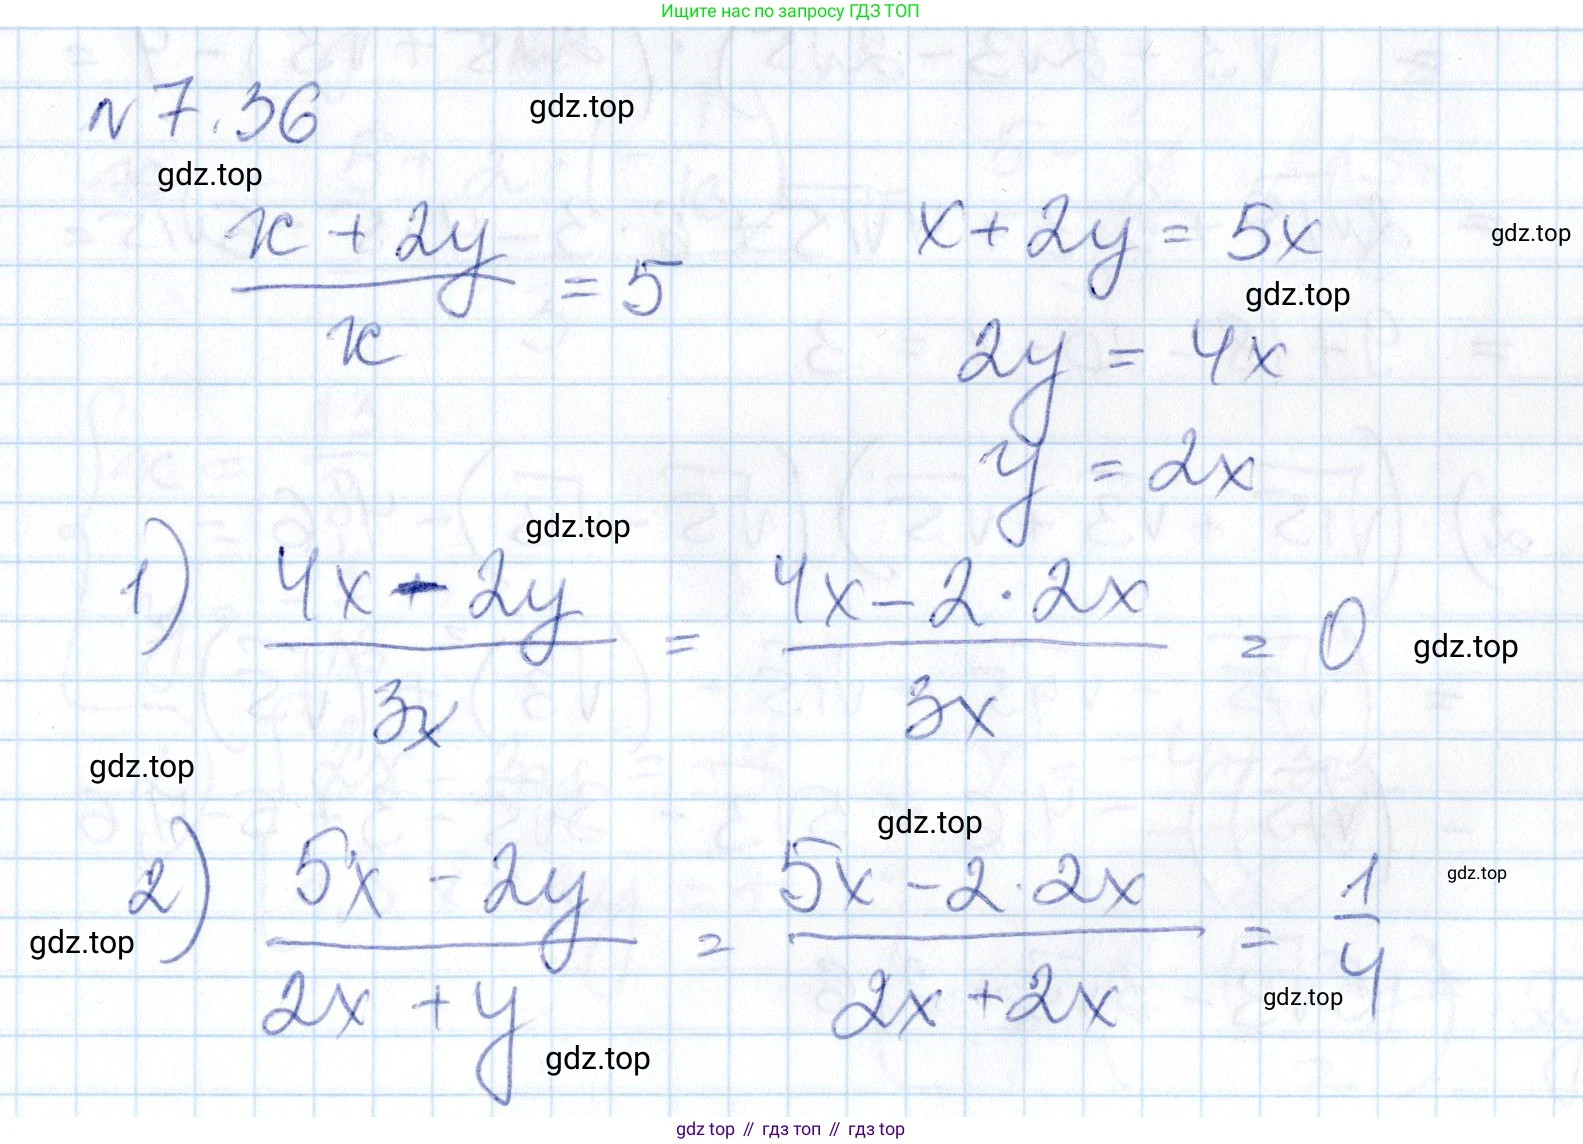 Ищите нас по запросу ГДЗ ТОП
№7.36
gdz.top
gdz.top
(x + 2y)/x = 5
x + 2y = 5x
gdz.top
gdz.top
2y = 4x
y = 2x
gdz.top
1) (4x - 2y)/3x = (4x - 2 · 2x)/3x = 0
gdz.top
gdz.top
gdz.top
2) (5x - 2y)/(2x + y) = (5x - 2 · 2x)/(2x + 2x) = 1/4
gdz.top
gdz.top
gdz.top
gdz.top
gdz top // гдз топ // гдз top